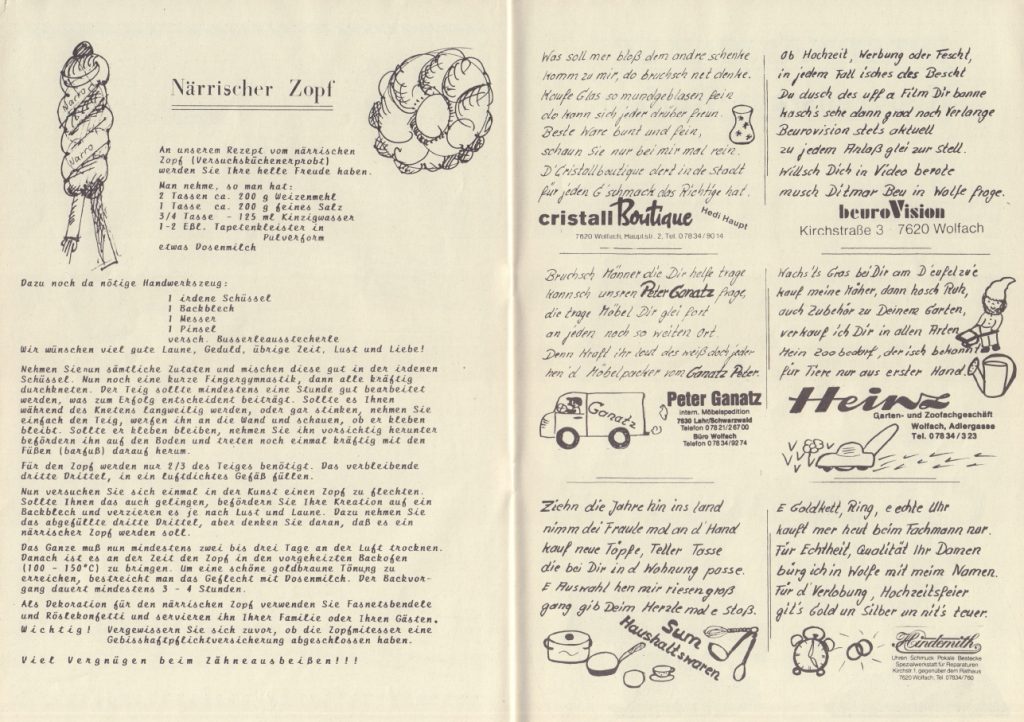 Närrischer Zopf
Narro
Narro
An unserem Rezept vom närrischen
Zopf (Versuchsküchenerprobt)
werden Sie Ihre helle Freude haben.
Man nehme, so man hat:
2 Tassen ca. 200 g Weizenmehl
1 Tasse ca. 200 g feines Salz
3/4 Tasse - 125 ml Kinzigwasser
1-2 EBl. Tapetenkleister in
Pulverform
etwas Dosenmilch
Dazu noch da nötige Handwerkszeug:
1 irdene Schüssel
1 Backblech
1 Messer
1 Pinsel
versch. Busserleausstecherle
Wir wünschen viel gute Laune, Geduld, übrige Zeit, Lust und Liebe!
Nehmen Sie nun sämtliche Zutaten und mischen diese gut in der irdenen
Schüssel. Nun noch eine kurze Fingergymnastik, dann alle kräftig
durchkneten. Der Teig sollte mindestens eine Stunde gut bearbeitet
werden, was zum Erfolg entscheident beiträgt. Sollte es Ihnen
während des Knetens langweilig werden, oder gar stinken, nehmen Sie
einfach den Teig, werfen ihn an die Wand und schauen, ob er kleben
bleibt. Sollte er kleben bleiben, nehmen Sie ihn vorsichtig herunter
befördern ihn auf den Boden und treten noch einmal kräftig mit den
Füßen (barfuß) darauf herum.
Für den Zopf werden nur 2/3 des Teiges benötigt. Das verbleibende
dritte Drittel, in ein luftdichtes Gefäß füllen.
Nun versuchen Sie sich einmal in der Kunst einen Zopf zu flechten.
Sollte Ihnen das auch gelingen, befördern Sie Ihre Kreation auf ein
Backblech und verzieren es je nach Lust und Laune. Dazu nehmen Sie
das abgefüllte dritte Drittel, aber denken Sie daran, daß es ein
närrischer Zopf werden soll.
Das Ganze muß nun mindestens zwei bis drei Tage an der Luft trocknen.
Danach ist es an der Zeit den Zopf in den vorgeheizten Backofen
(100 - 150°C) zu bringen. Um eine schöne goldbraune Tönung zu
erreichen, bestreicht man das Geflecht mit Dosenmilch. Der Backvor-
gang dauert mindestens 3 - 4 Stunden.
Als Dekoration für den närrischen Zopf verwenden Sie Fasnetsbendele
und Röslekonfetti und servieren ihn Ihrer Familie oder Ihren Gästen.
Wichtig! Vergewissern Sie sich zuvor, ob die Zopfmitesser eine
Gebisshaftpflichtversicherung abgeschlossen haben.
Viel Vergnügen beim Zähneausbeißen!!!
Was soll mer bloß dem andre schenke
komm zu mir, do bruchsch net denke.
Koufe Glas so mundgeblasen fein
do kann sich jeder drüber freun.
Beste Ware bunt und fein,
schaun Sie nur bei mir mal rein.
D'Cristallboutique dert in de Stadt
für jeden G'schmack das Richtige hat.
cristall Boutique Hedi Haupt
7620 Wolfach, Hauptstr. 2, Tel. 07834/9014
Bruchsch Männer die Dir helfe trage
kannsch unsren Peter Ganatz frage,
die trage Möbel Dir glei fort
an jeden noch so weiten Ort.
Denn Kraft ihr leut des weiß doch jeder
hen'd Möbelpacker vom Ganatz Peter.
Ganatz
Peter Ganatz
Intern. Möbelspedition
7630 Lahr/Schwarzwald
Telefon 07821/26700
Büro Wolfach
Telefon 07834/9274
Ziehn die Jahre hin ins land
nimm dei Fraule mal an d Hand
kauf neue Töpfe, Teller Tasse
die bei Dir in d Wohnung passe.
E Auswahl hen mir riesengroß
gang gib Deim Herzle mal e Stoß.
Sum
Haushaltswaren
Ob Hochzeit, Werbung oder Fescht,
in jedem Fall isches des Bescht
Du dusch des uff a Film Dir banne
kasch's sehe dann grad noch Verlange
Beurovision stets aktuell
zu jedem Anlaß glei zur Stell.
Willsch Dich in Video berate
musch Ditmar Beu in Wolfe froge.
beuroVision
Kirchstraße 3 · 7620 Wolfach
Wachs'ts Gras bei Dir am D'eufelzu'e
kauf meine Mäher, dann hosch Ruh,
auch Zubehör zu Deinem Garten,
verkauf ich Dir in allen Arten
Mein Zoobedarf, der isch bekannt
für Tiere nur aus erster Hand.
Heinz
Garten- und Zoofachgeschäft
Wolfach, Adlergasse
Tel. 07834/323
E Goldkett, Ring, e echte Uhr
kauft mer heut beim Fachmann nur.
Für Echtheit, Qualität Ihr Damen
bürg ich in Wolfe mit meim Namen.
Für d'Verlobung, Hochzeitsfeier
git's Gold un Silber un nit's teuer.
Hindemith
Uhren Schmuck Pokale Bestecke
Spezialwerkstatt für Reparaturen
Kirchstr 1, gegenüber dem Rathaus
7620 Wolfach, Tel. 07834/780